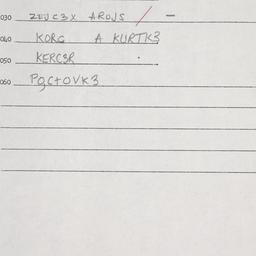 030 ZEJCZX AROJS / –
040 KORG A KURTKZ
050 KERCSR .
060 PGCTOVKZ